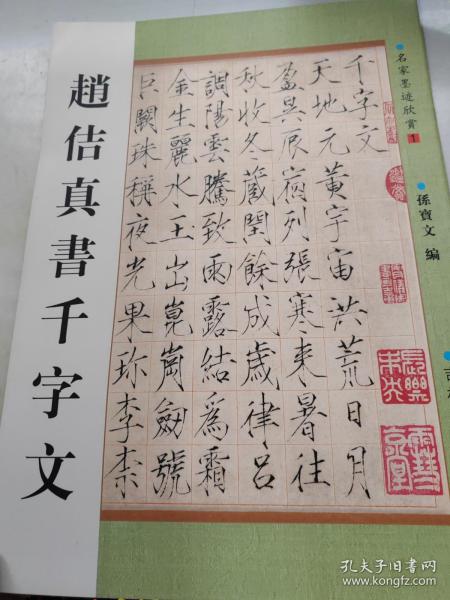 趙佶真書千字文
名家墨迹欣賞1
孫寶文 編
千字文
天地元黄宇宙洪荒日月
盈昃辰宿列張寒来暑往
秋收冬蔵閏餘成歲律吕
調陽雲騰致雨露結爲霜
金生麗水玉出崑崗劒號
巨闕珠稱夜光果珍李柰
孔夫子旧书网
www.kongfz.com